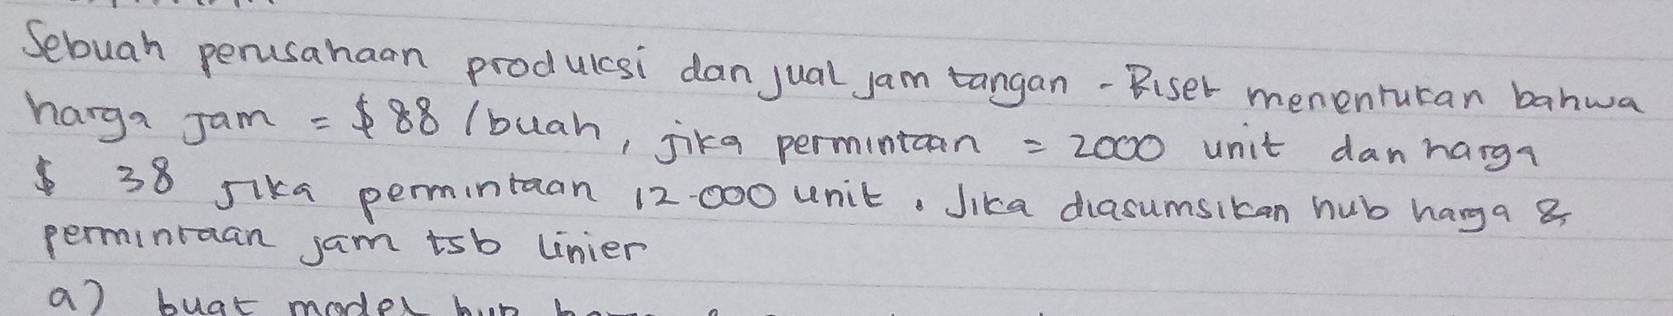 Sebuah perusahaan produksi dan jual jam tangan - Riset menentukan bahwa
harga Jam = $ 88 / buah, jika permintaan = 2000 unit dan harga
$ 38 jika permintaan 12.000 unit. Jika diasumsikan hub harga &
permintaan jam tsb linier
a) buat model hub